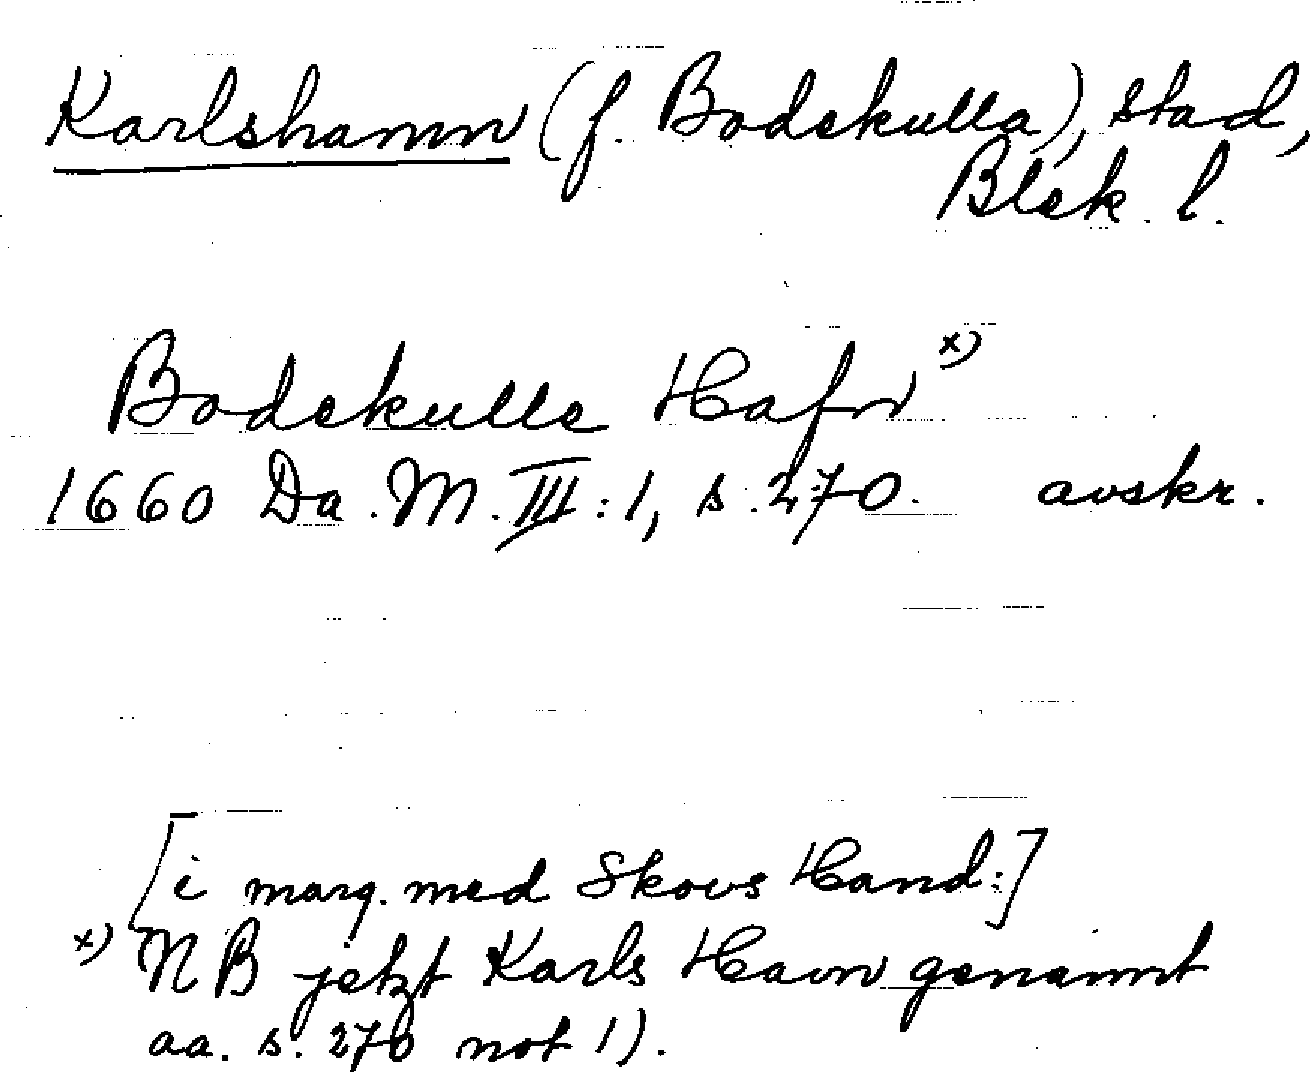 Karlshamn (f. Bodekulla), stad,
Blek. l.
Bodekulle Hafn x)
1660 Da. M. III: 1, s. 270. avskr.
[i marg. med Skovs Hand:]
x) NB jetzt Karls Havn genannt
aa. s. 270 not 1).